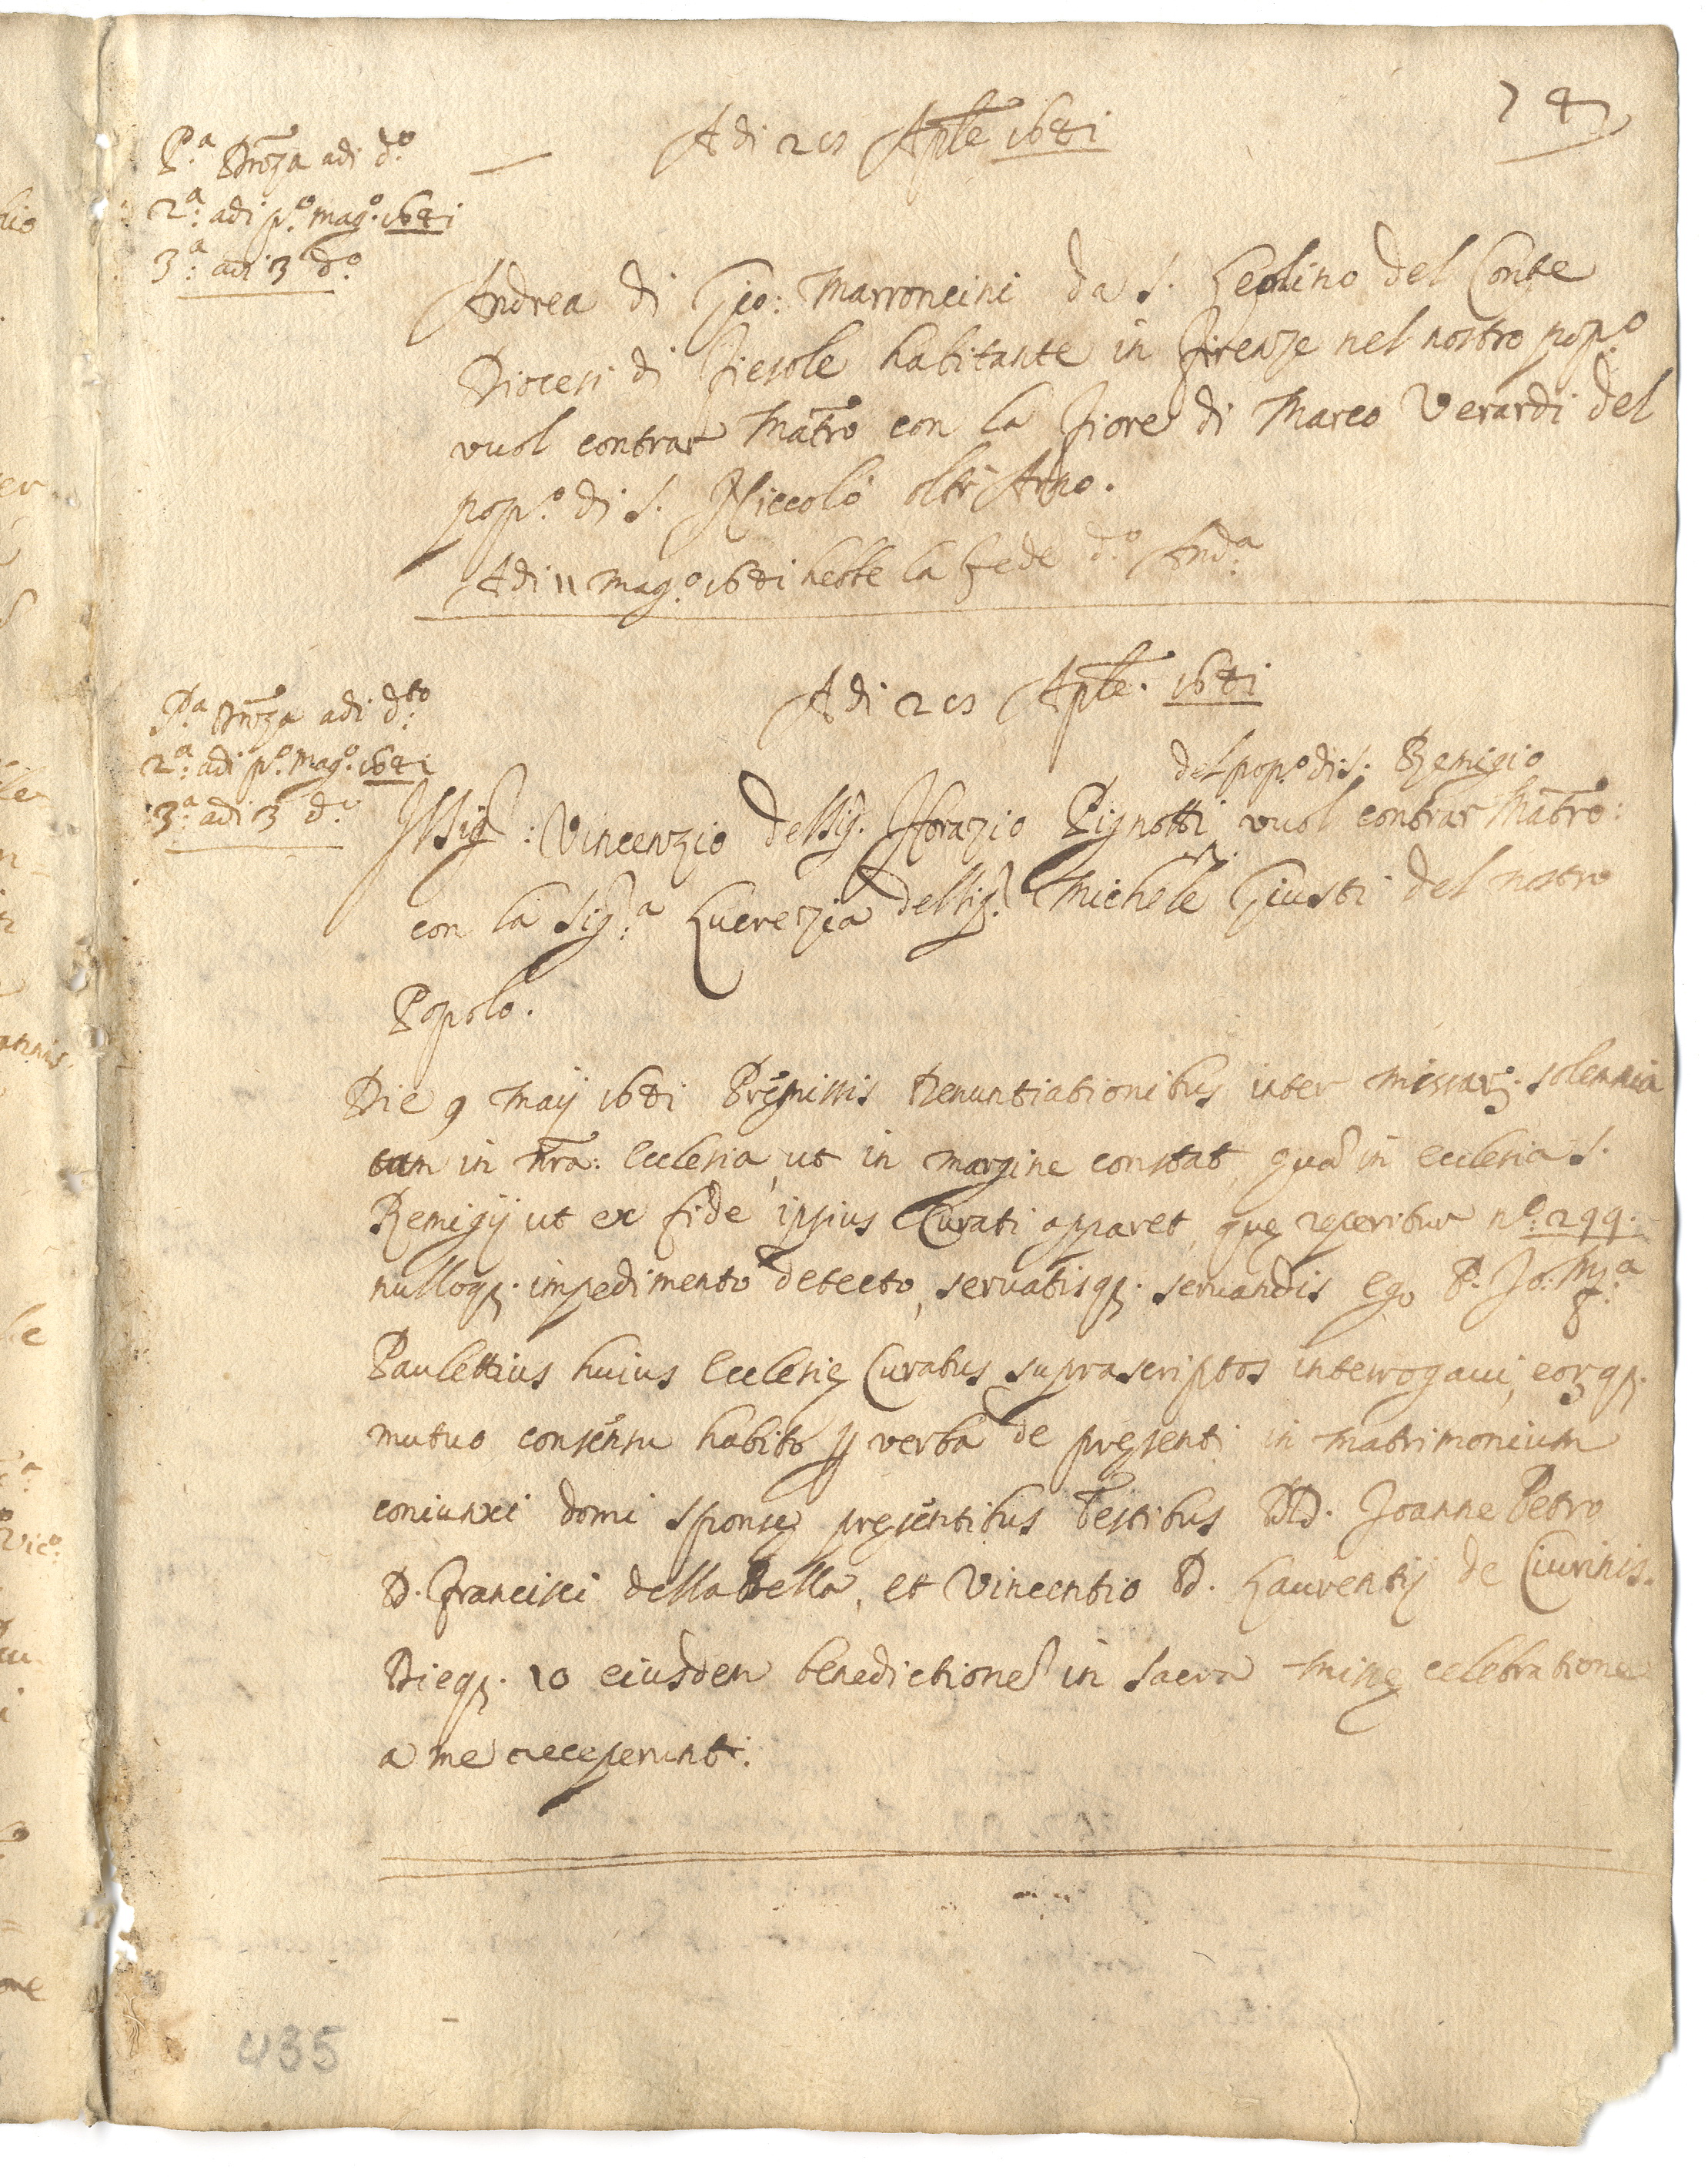 74
P.a Dnŏza adi d.o
2.a adi p.o mag.o 1641
3.a adi 3 d.o
Adi 28 Aple 1641
Andrea di Gio: Marroncini da S. Leolino del Conte
Diocesi di Fiesole habitante in firenze nel nostro pop.o
vuol contrar Matro con la Fiore di Marco Verardi del
pop.o di S. Niccolò oltr'Arno.
Adi 11 mag.o 1641 hebbe la fede d.o And.a
P.a Dnŏza adi d.to
2.a adi p.o Mag.o 1641
3.a adi 3 d.o
Adi 28 Aple. 1641
del pop.o di S. Remigio
Il Sig.r Vincenzio del Sig. Horazio Pignotti vuol contrar Matro:
con la Sig.a Lucrezia del Sig.r Michele Giusti del nostro
Popolo.
Die 9 Maij 1641 Pręmissis Denuntiationibus inter missarꝝ. solennia
tam in nra: Ecclesia, ut in margine constat, quā in Ecclesia S.
Remigij ut ex fide ipsius Curati apparet, quę reperitur n.o 299.
nulloqꝫ. impedimento detecto, servatisqꝫ. servandis Ego P. Jo: M.a
Paulettius huius Ecclesię Curatus suprascriptos interrogavi, eorꝝqꝫ.
mutuo consensu habito ꝑ verba de pręsenti in matrimonium
coniunxi domi sponsę pręsentibus Testibus DD. Joanne Petro
D. Francisci della Bella, et Vincentio D. Laurentij de Ciurinis.
Dieqꝫ. 10 eiusdem benedictionē in sacra missę celebratione
a me receperunt.
435